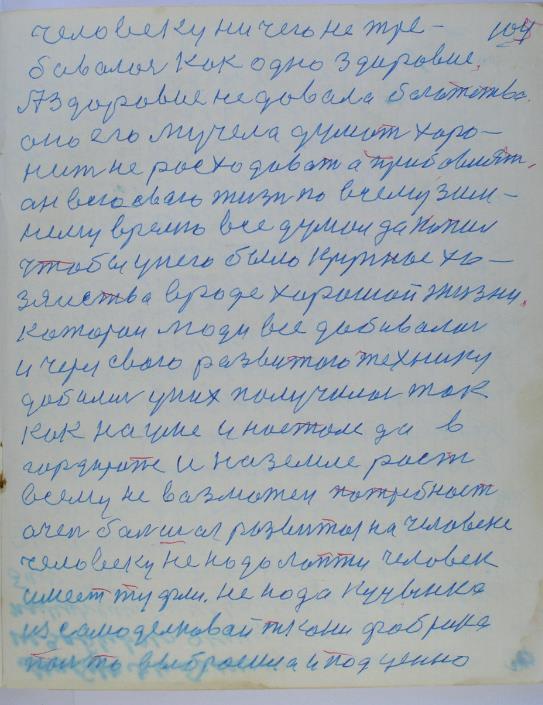 человеку ничего не тре-
104
бавалоя как одно здоровие,
А здоровие не довала богатства.
оно его мучела думат харо-
нит не росходоват а прибовлят,
он всю сваю жизн по всему зим-
нему времю все думол да копил
чтобы унего было крупное хо-
зяиства вроде хорошой жизни,
которои люди все добивалоя
и через сваго развитого технику
добалия уних получилоя так
как на уме и на стоме да в
гордироте и на земле раст
всему не вазможен потребност
очен балшая развитоя на человеке
человеку не нодо лапти человек
имеет туфли. не нода
из самоделковай ткани фабрика
выбросила и под ценно